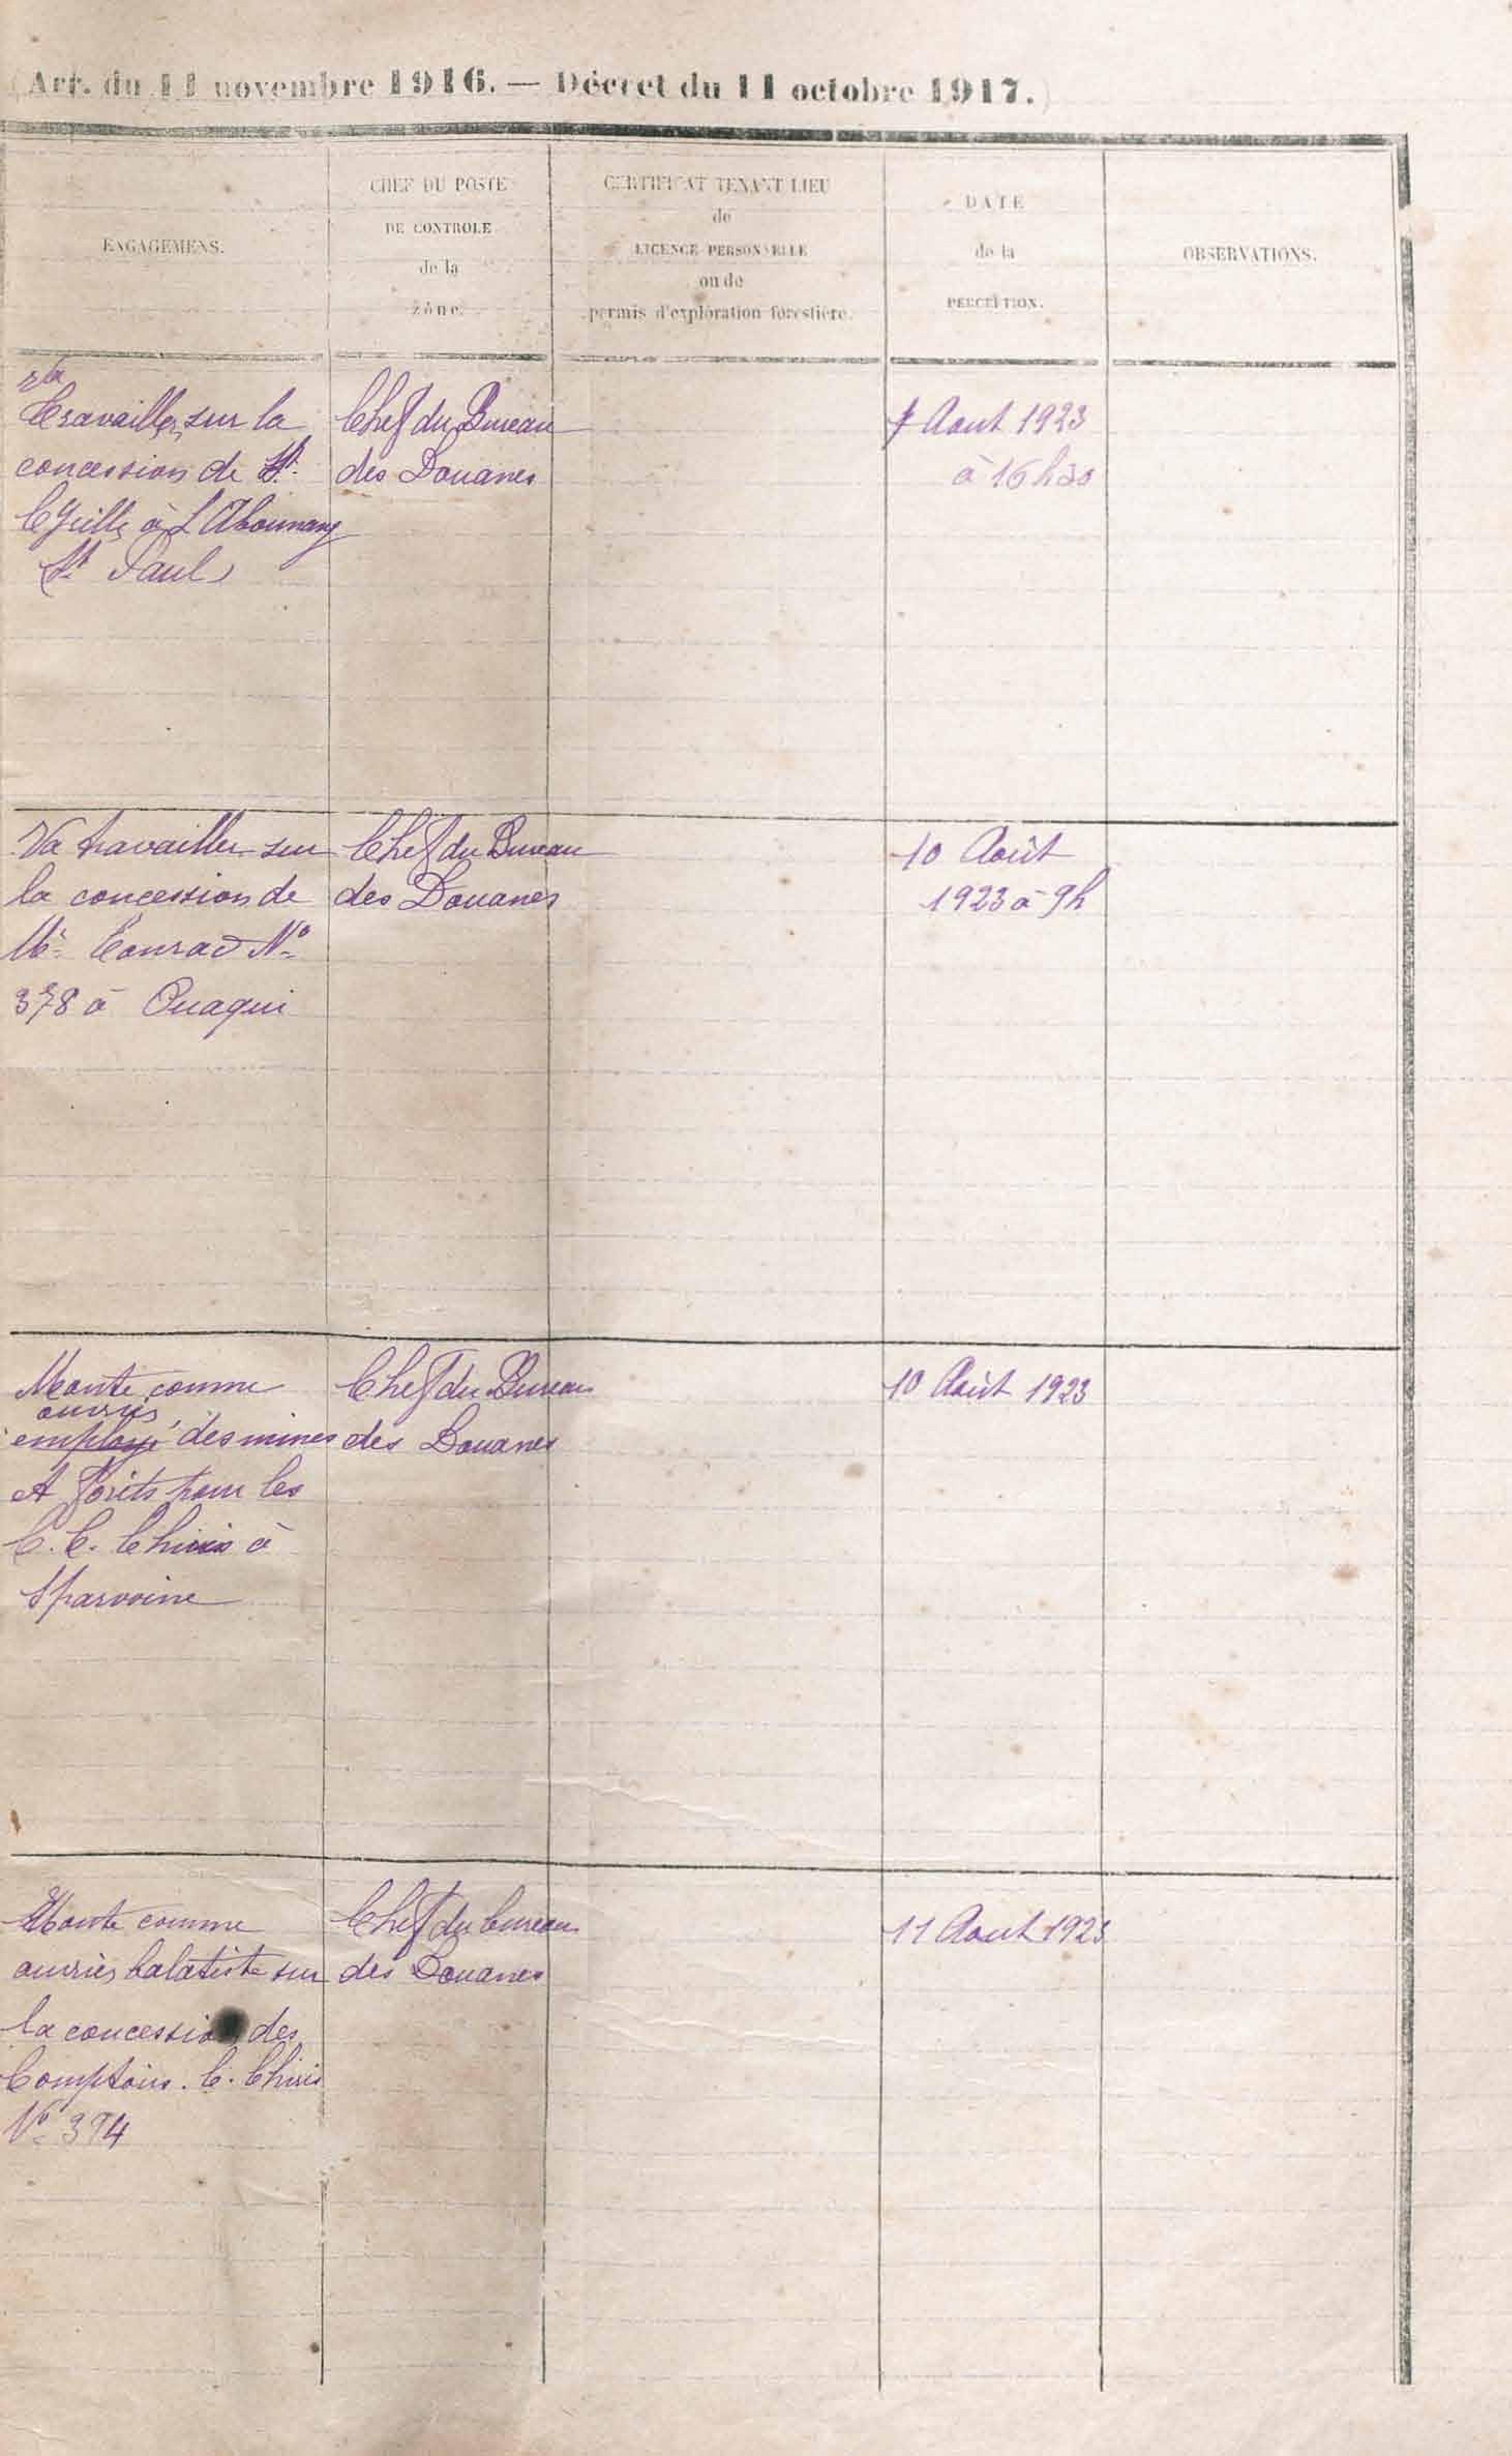 (Arr. du 11 novembre 1916. — Décret du 11 octobre 1917.)
ENGAGEMENS.
CHEF DU POSTE
DE CONTROLE
de la
zône.
CERTIFICAT TENANT LIEU
de
LICENCE PERSONNELLE
ou de
permis d'exploration forestière.
DATE
de la
PERCEPTION.
OBSERVATIONS.
Va
travailler sur la
concession de
à L'Abounamy
St Paul
Chef du Bureau
des Douanes
Aout 1923
à 16 h 30
Va travailler sur
la concession de
Mr Conrad No
378 à Ouaqui
Chef du Bureau
des Douanes
10 Août
1923 à 9h
Monte comme
ouvrier
employé des mines
et forêts pour les
C. C. Chiris à
Sparwine
Chef du Bureau
des Douanes
10 Août 1923
Monte comme
ouvrier balatiste sur
la concession des
Comptoirs. C. Chiris
No 394
Chef du bureau
des Douanes
11 Aout 1923